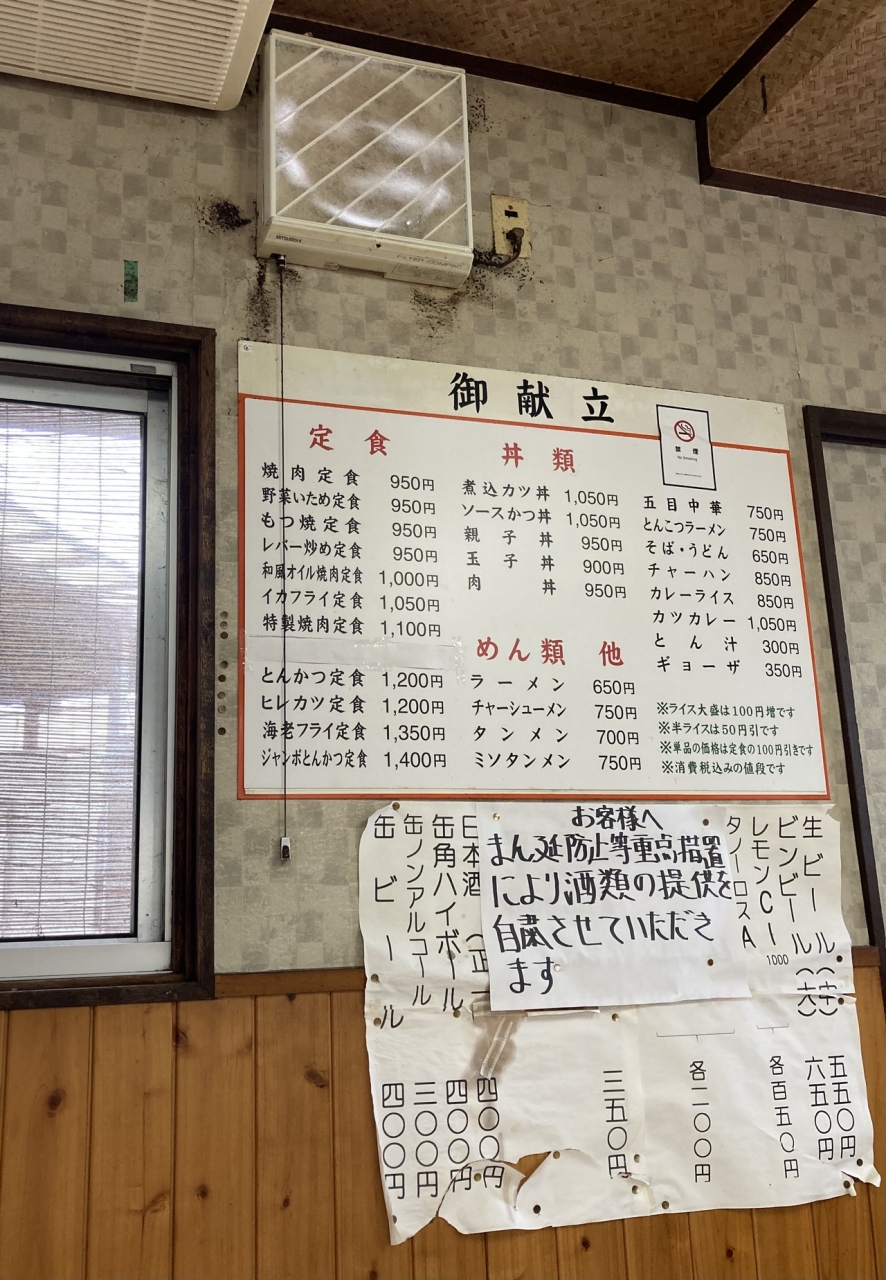 MITSUBISHI
御献立
禁煙
No Smoking
定食
焼肉定食 950円
野菜いため定食 950円
もつ焼定食 950円
レバー炒め定食 950円
和風オイル焼肉定食 1,000円
イカフライ定食 1,050円
特製焼肉定食 1,100円
とんかつ定食 1,200円
ヒレカツ定食 1,200円
海老フライ定食 1,350円
ジャンボとんかつ定食 1,400円
丼類
煮込カツ丼 1,050円
ソースかつ丼 1,050円
親子丼 950円
玉子丼 900円
肉丼 950円
めん類 他
ラーメン 650円
チャーシューメン 750円
タンメン 700円
ミソタンメン 750円
五目中華 750円
とんこつラーメン 750円
そば・うどん 650円
チャーハン 850円
カレーライス 850円
カツカレー 1,050円
とん汁 300円
ギョーザ 350円
※ライス大盛は100円増です
※半ライスは50円引です
※単品の価格は定食の100円引きです
※消費税込みの値段です
お客様へ
まん延防止等重点措置
により酒類の提供を
自粛させていただき
ます
生ビール(中) 五五〇円
ビンビール(大) 六五〇円
レモンCI 1000
各百五〇円
各二〇〇円
三五〇円
日本酒(正 四〇〇円
缶角ハイボール 四〇〇円
缶ノンアルコール 三〇〇円
缶ビール 四〇〇円